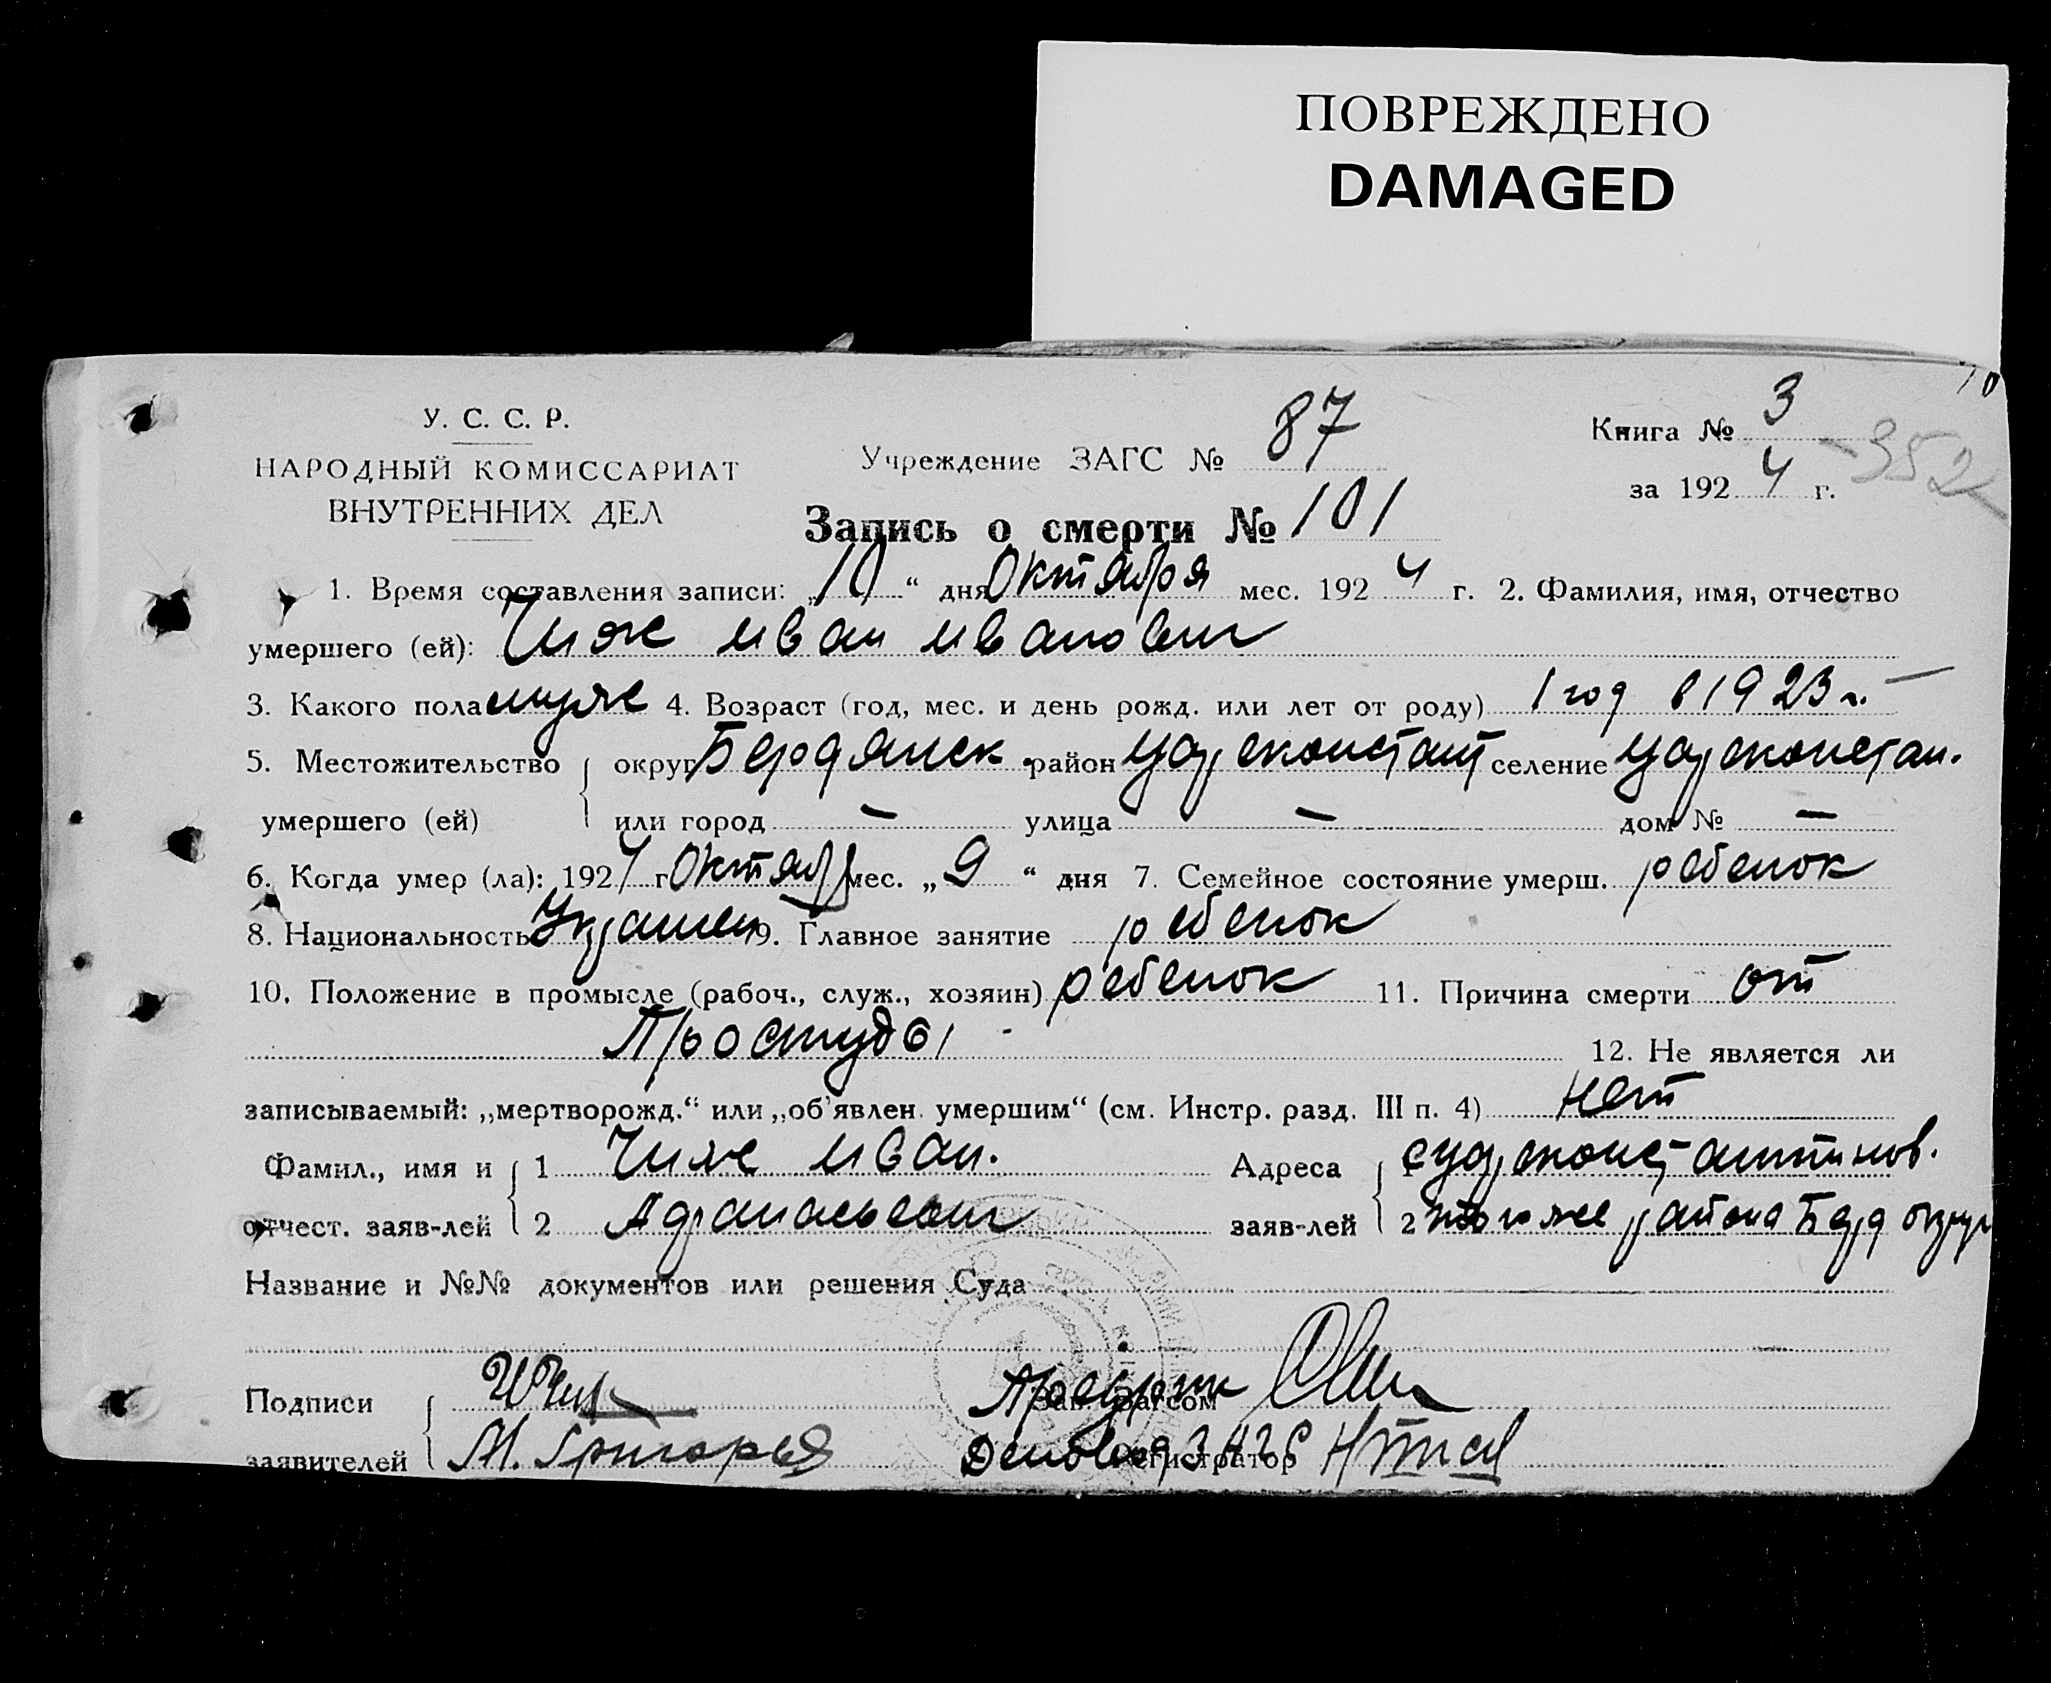 ПОВРЕЖДЕНО
DAMAGED
10
У. С. С. Р.
НАРОДНЫЙ КОМИССАРИАТ
ВНУТРЕННИХ ДЕЛ
Учреждение ЗАГС № 87
Книга № 3
за 1924 г.
352
Запись о смерти № 101
1. Время составления записи: „10“ дня Октября мес. 1924 г. 2. Фамилия, имя, отчество
умершего (ей): Чиж иван иванович
3. Какого пола муже 4. Возраст (год, мес. и день рожд. или лет от роду) 1 год в 1923 г.
5. Местожительство округ Бердянск. район Царсконстант селение Царсконстан.
умершего (ей) или город — улица — дом № —
6. Когда умер (ла): 1924 г. Октябр мес. „9“ дня 7. Семейное состояние умерш. ребенок
8. Национальность Украинец 9. Главное занятие ребенок
10. Положение в промысле (рабоч., служ., хозяин) ребенок 11. Причина смерти от
Простуды 12. Не является ли
записываемый: „мертворожд.“ или „об'явлен. умершим“ (см. Инстр. разд. III п. 4) нет
Фамил., имя и 1 Чиж иван. Адреса 1 с царсконстантинов.
отчест. заяв-лей 2 заяв-лей 2 того же района Берд округа
Название и №№ документов или решения Суда
Подписи Зав. Загсом
заявителей М. Григорья Регистратор